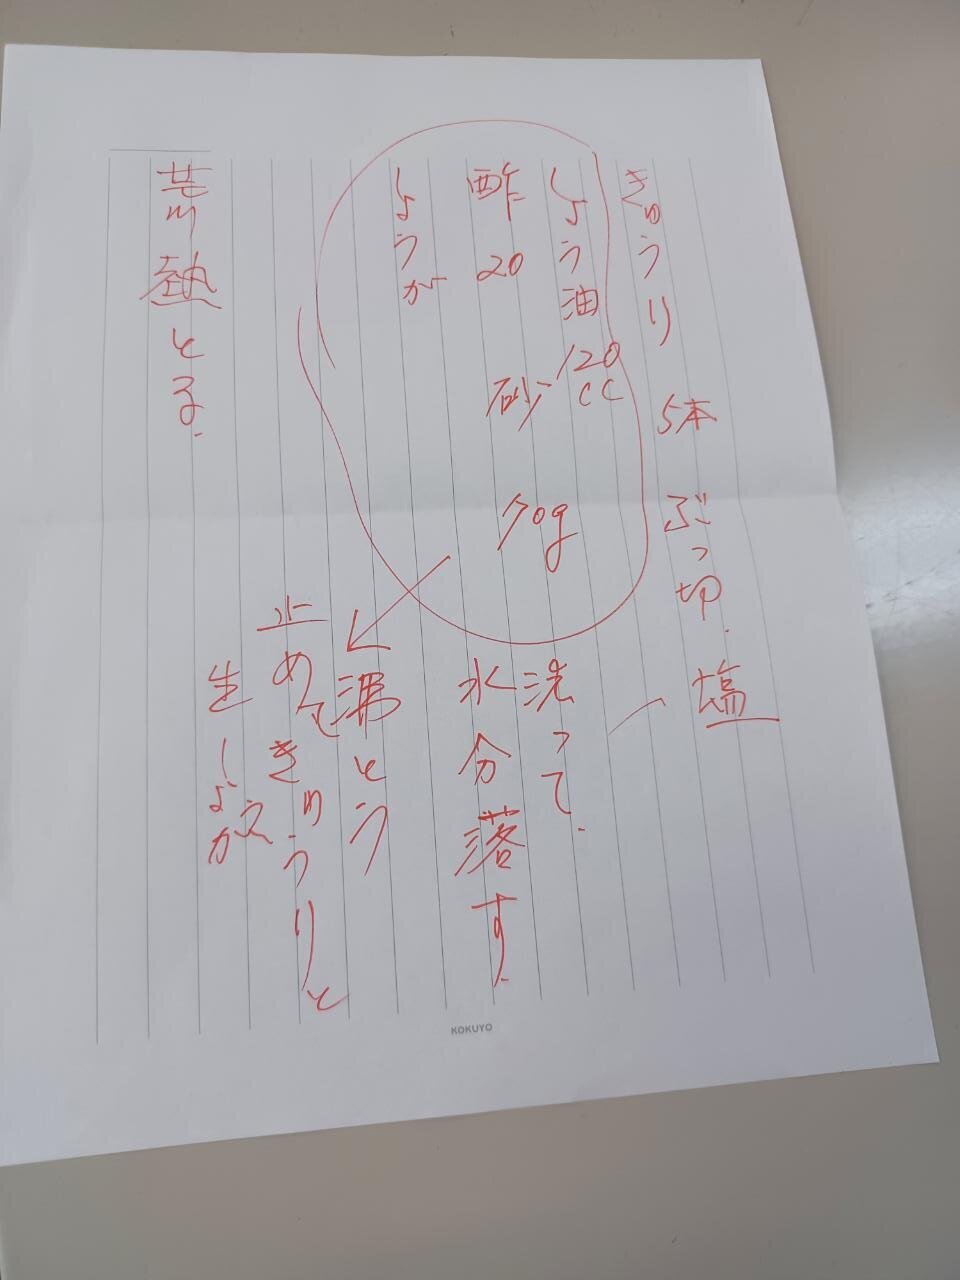 きゅうり 5本 ぶつ切り. 塩
しょう油 120cc
酢 20 砂 70g
しょうが
洗って.
水分落す.
沸とう
止めてきゅうりと
生しょうが入
荒熱とる.
KOKUYO